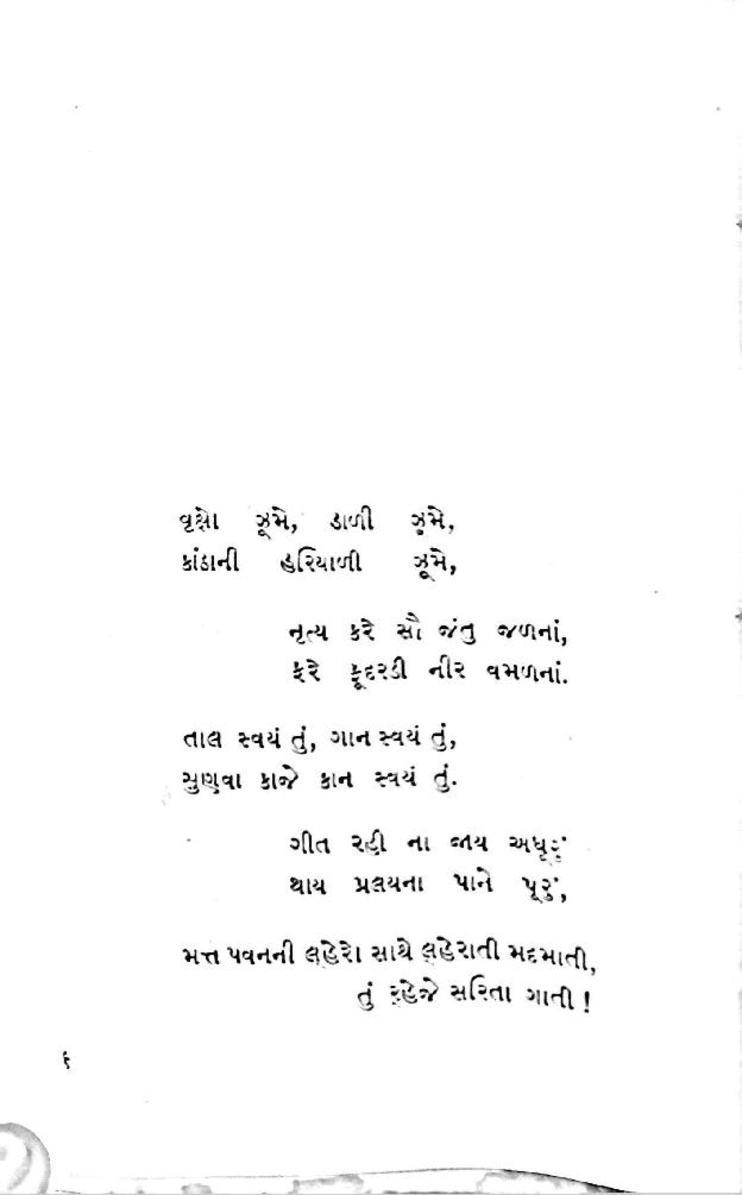 વૃક્ષો ઝૂમે, ડાળી ઝૂમે,
કાંઠાની હરિયાળી ઝૂમે,
નૃત્ય કરે સૌ જંતુ જળનાં,
ફરે ફૂદરડી નીર વમળનાં.
તાલ સ્વયં તું, ગાન સ્વયં તું,
સુણવા કાજે કાન સ્વયં તું.
ગીત રહી ના જાય અધૂરું
થાય પ્રલયના પાને પૂરું,
મત્ત પવનની લ્હેરો સાથે લ્હેરાતી મદમાતી,
તું ર્હેજે સરિતા ગાતી !
૬